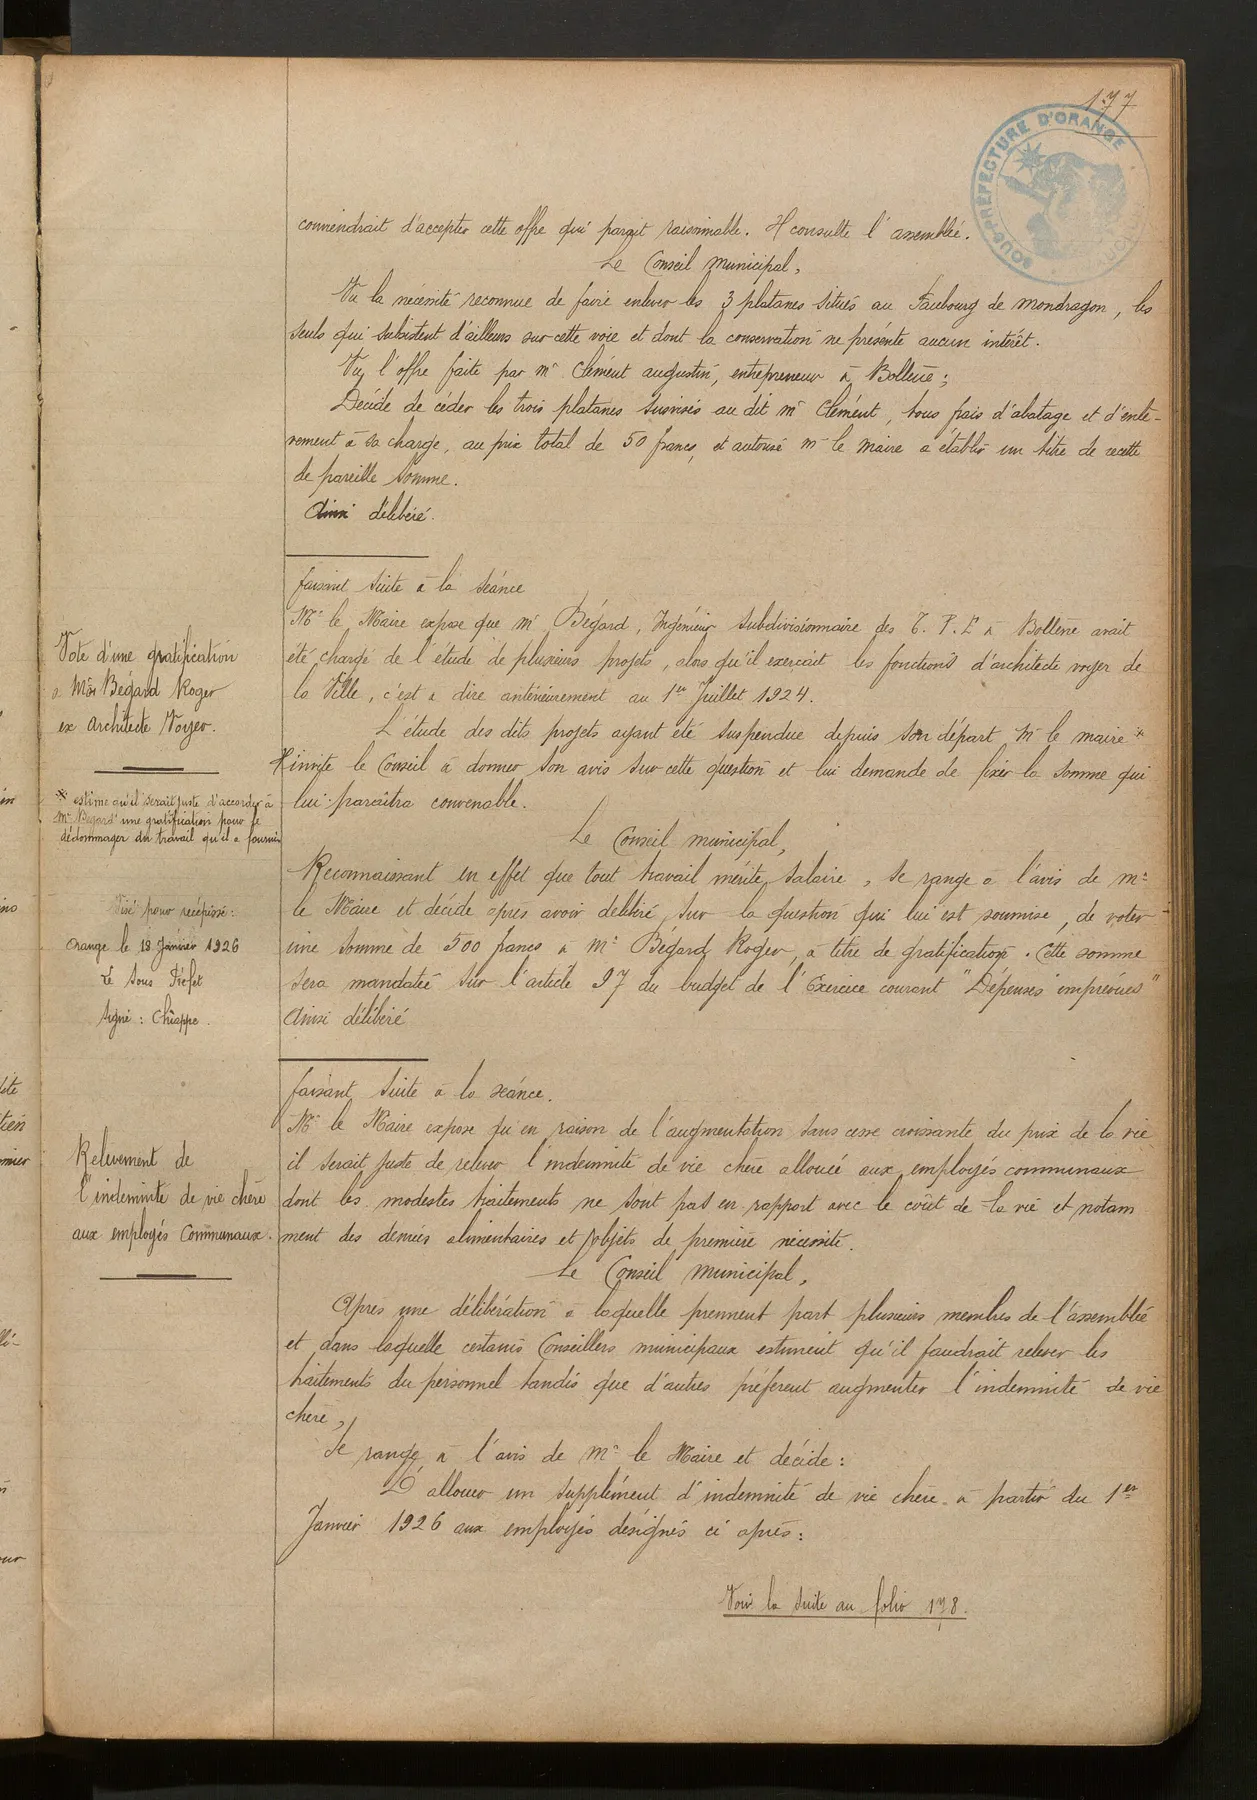 177
SOUS-PRÉFECTURE D'ORANGE
conviendrait d'accepter cette offre qui parait raisonnable. Il consulte l'assemblée.
Le Conseil municipal,
Vu la nécessité reconnue de faire enlever les 3 platanes situés au Faubourg de Mondragon, les
seuls qui subsistent d'ailleurs sur cette voie et dont la conservation ne présente aucun intérêt.
Vu l'offre faite par Mr Clément augustin, entrepreneur à Bollène;
Décide de céder les trois platanes susvisés au dit Mr Clément, tous frais d'abatage et d'enlè-
vement à sa charge, au prix total de 50 francs, et autorise Mr le Maire à établir un titre de recette
de pareille somme.
Ainsi délibéré.
faisant suite à la séance
Vote d'une gratification
à Mr Bégard Roger
ex Architecte Voyer.
Mr le Maire expose que Mr Bégard, Ingénieur Subdivisionnaire des T. P. E à Bollène avait
été chargé de l'étude de plusieurs projets, alors qu'il exerçait les fonctions d'architecte voyer de
la Ville, c'est à dire antérieurement au 1er Juillet 1924.
L'étude des dits projets ayant été suspendue depuis son départ Mr le maire *
* estime qu'il serait juste d'accorder à
Mr Bégard une gratification pour le
dédommager du travail qu'il a fourni
Il invite le Conseil à donner son avis sur cette question et lui demande de fixer la somme qui
lui paraîtra convenable.
Le Conseil municipal,
Reconnaissant en effet que tout travail mérite salaire, se range à l'avis de Mr
le Maire et décide après avoir délibéré, sur la question qui lui est soumise, de voter
une somme de 500 francs à Mr Bégard Roger, à titre de gratification. Cette somme
sera mandatée sur l'article 97 du budget de l'Exercice courant "Dépenses imprévues"
Ainsi délibéré
Visé pour récépissé:
Orange le 18 Janvier 1926
Le Sous Préfet
Signé: Chiappe.
faisant suite à la séance.
Relèvement de
l'indemnité de vie chère
aux employés Communaux.
Mr le Maire expose qu'en raison de l'augmentation sans cesse croissante du prix de la vie
il serait juste de relever l'indemnité de vie chère allouée aux employés communaux
dont les modestes traitements ne sont pas en rapport avec le coût de la vie et notam
ment des denrées alimentaires et objets de première nécessité.
Le Conseil Municipal,
Après une délibération à laquelle prennent part plusieurs membres de l'assemblée
et dans laquelle certains Conseillers municipaux estiment qu'il faudrait relever les
traitements du personnel tandis que d'autres préfèrent augmenter l'indemnité de vie
chère,
Se range à l'avis de Mr le Maire et décide:
D'allouer un supplément d'indemnité de vie chère à partir du 1er
Janvier 1926 aux employés désignés ci après:
Voir la suite au folio 178.